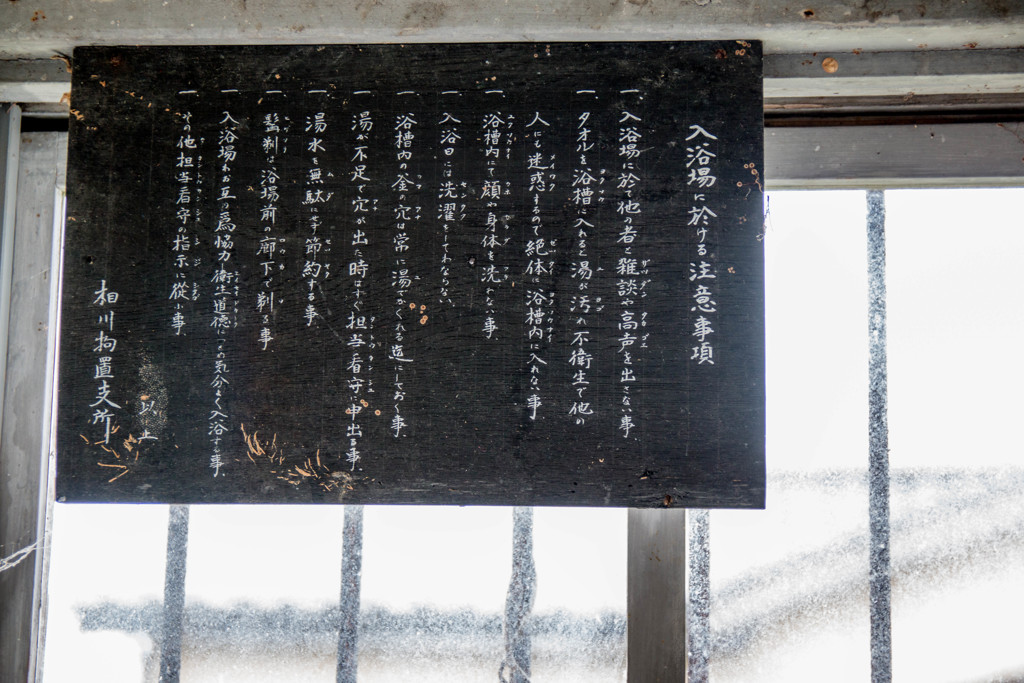 入浴場に於ける注意事項
一、入浴場に於て他の者と雑談や高声を出さない事
一、タオルを浴槽に入れると湯が汚れ不衛生で他の
人にも迷惑するので絶体に浴槽内に入れない事
一、浴槽内にて顔や身体を洗わない事
一、入浴日には洗濯をしてわならない、
一、浴槽内の釜の穴は常に湯でかくれる迄にしておく事
一、湯が不足で穴が出た時はすぐ担当看守に申出る事
一、湯水を無駄にせず節約する事
一、髭剃は浴場前の廊下で剃る事
一、入浴場わお互の為協力し衛生道徳につめ気分よく入浴する事
一、その他担当看守の指示に從ふ事
以上
相川拘置支所